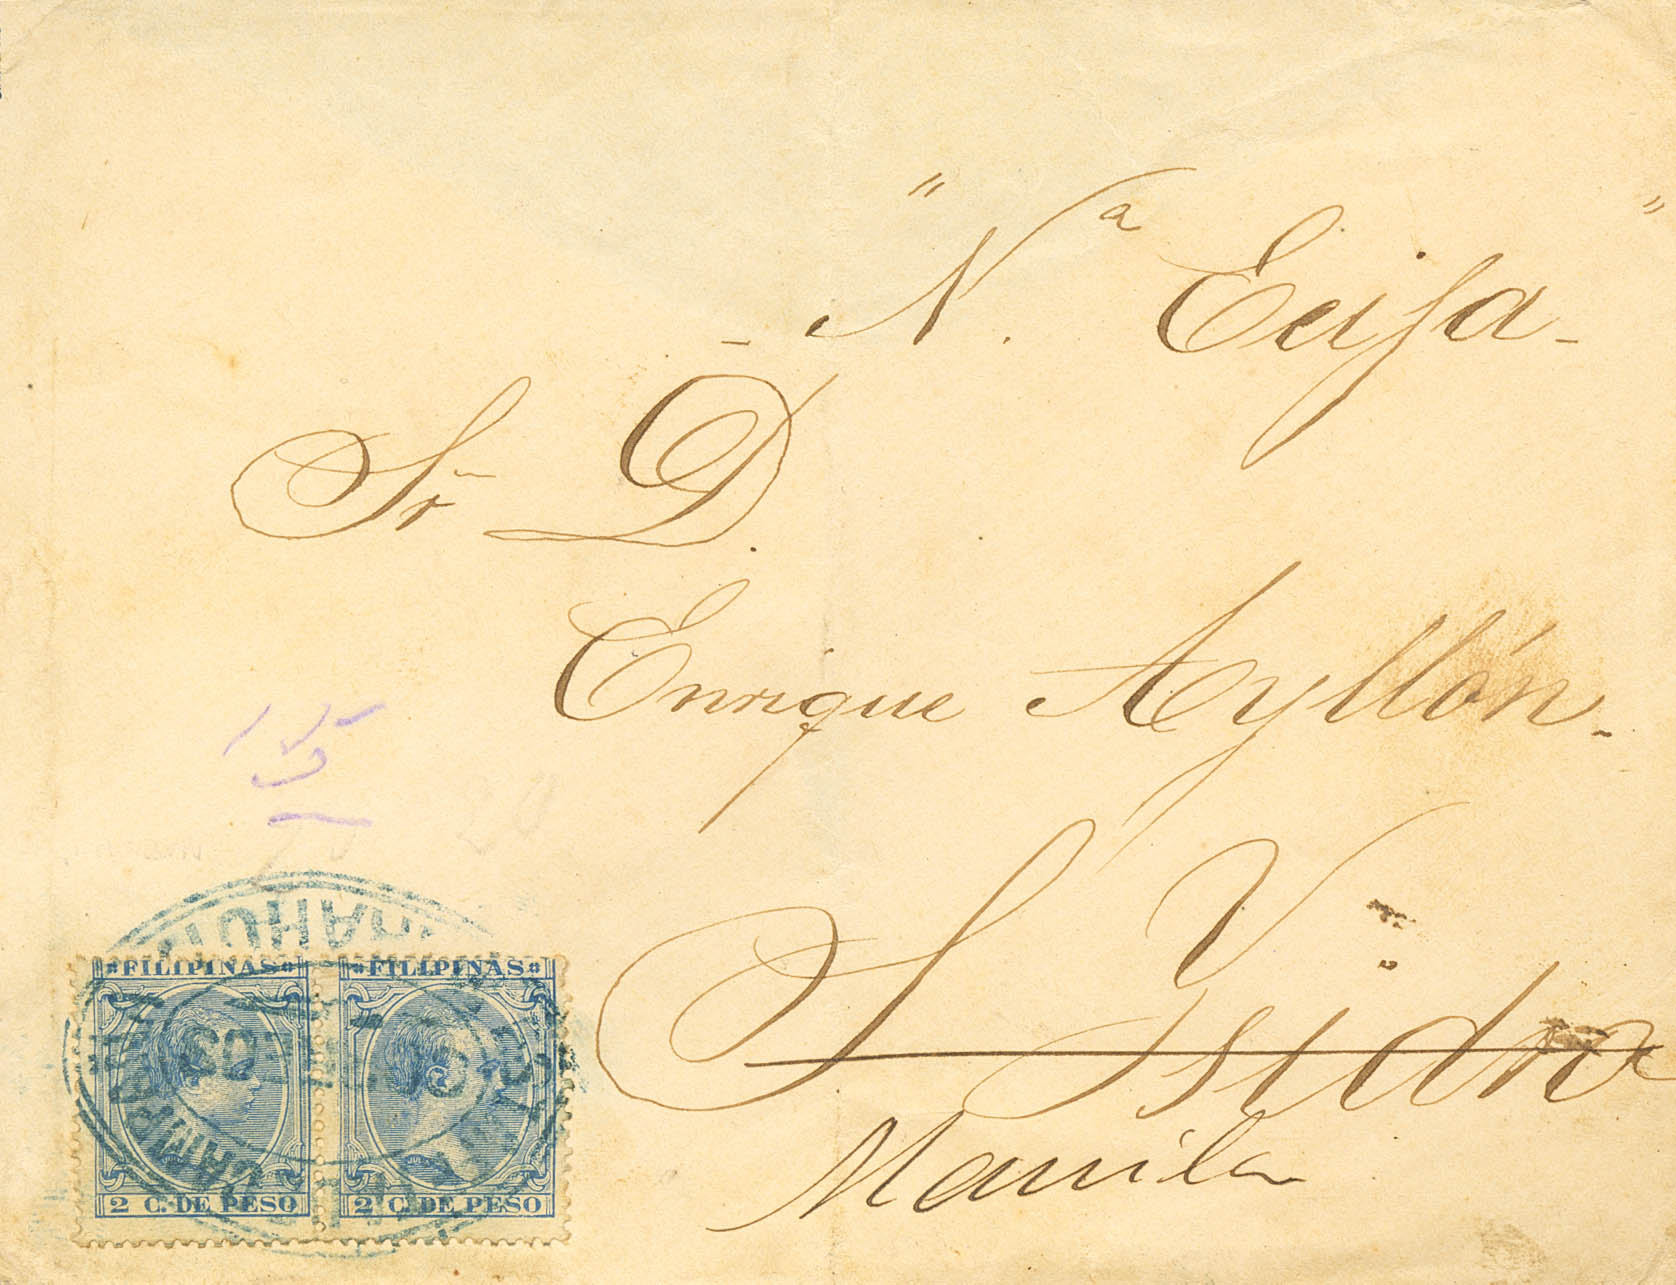 " N.ª Ecija "
Sr D.
Enrique Ayllón.
15
S Ysidro
Manila
FILIPINAS FILIPINAS
2 C. DE PESO 2 C. DE PESO